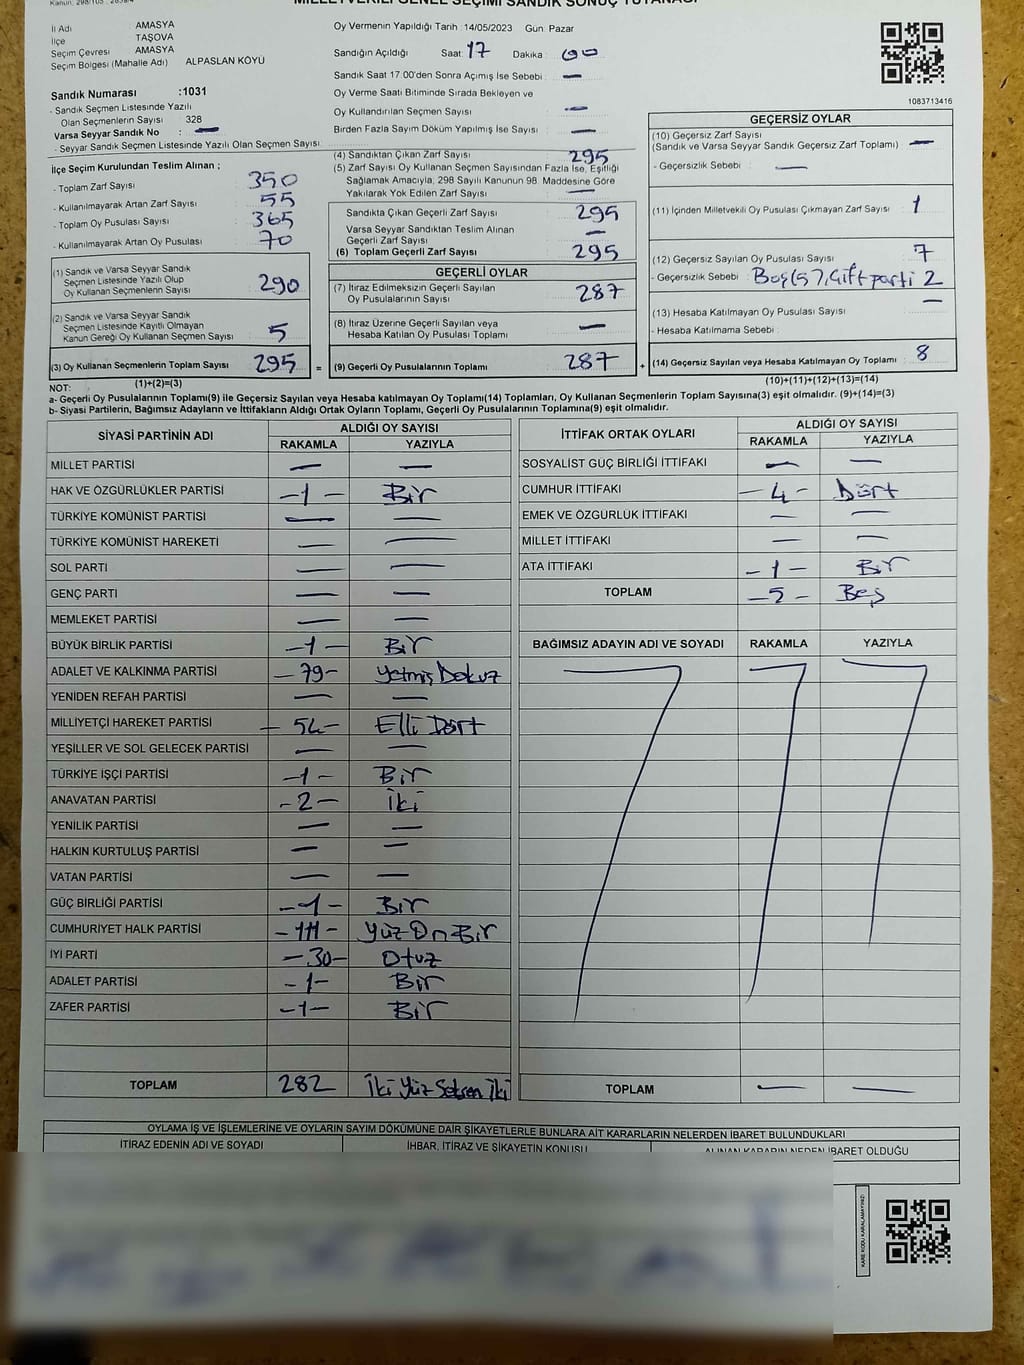 MİLLETVEKİLİ GENEL SEÇİMİ SANDIK SONUÇ TUTANAĞI
İl Adı : AMASYA
İlçe TAŞOVA
Seçim Çevresi AMASYA
Seçim Bölgesi (Mahalle Adı) ALPASLAN KÖYÜ
Oy Vermenin Yapıldığı Tarih : 14/05/2023 Gün: Pazar
Sandığın Açıldığı Saat: 17 Dakika : 00
Sandık Saat 17.00'den Sonra Açımış İse Sebebi : —
Sandık Numarası :1031
- Sandık Seçmen Listesinde Yazılı
Olan Seçmenlerin Sayısı 328
Varsa Seyyar Sandık No : —
- Seyyar Sandık Seçmen Listesinde Yazılı Olan Seçmen Sayısı
Oy Verme Saati Bitiminde Sırada Bekleyen ve
Oy Kullandırılan Seçmen Sayısı : —
Birden Fazla Sayım Döküm Yapılmış İse Sayısı : —
1083713416
İlçe Seçim Kurulundan Teslim Alınan ;
- Toplam Zarf Sayısı : 350
- Kullanılmayarak Artan Zarf Sayısı : 55
- Toplam Oy Pusulası Sayısı : 365
- Kullanılmayarak Artan Oy Pusulası : 70
(1) Sandık ve Varsa Seyyar Sandık
Seçmen Listesinde Yazılı Olup
Oy Kullanan Seçmenlerin Sayısı : 290
(2) Sandık ve Varsa Seyyar Sandık
Seçmen Listesinde Kayıtlı Olmayan
Kanun Gereği Oy Kullanan Seçmen Sayısı : 5
(3) Oy Kullanan Seçmenlerin Toplam Sayısı : 295 =
(1)+(2)=(3)
(4) Sandıktan Çıkan Zarf Sayısı : 295
(5) Zarf Sayısı Oy Kullanan Seçmen Sayısından Fazla İse, Eşitliği
Sağlamak Amacıyla, 298 Sayılı Kanunun 98. Maddesine Göre
Yakılarak Yok Edilen Zarf Sayısı : —
Sandıkta Çıkan Geçerli Zarf Sayısı : 295
Varsa Seyyar Sandıktan Teslim Alınan
Geçerli Zarf Sayısı : —
(6) Toplam Geçerli Zarf Sayısı : 295
GEÇERLİ OYLAR
(7) İtiraz Edilmeksizin Geçerli Sayılan
Oy Pusulalarının Sayısı : 287
(8) İtiraz Üzerine Geçerli Sayılan veya
Hesaba Katılan Oy Pusulası Toplamı : —
(9) Geçerli Oy Pusulalarının Toplamı : 287 +
GEÇERSİZ OYLAR
(10) Geçersiz Zarf Sayısı
(Sandık ve Varsa Seyyar Sandık Geçersiz Zarf Toplamı) : —
- Geçersizlik Sebebi : —
(11) İçinden Milletvekili Oy Pusulası Çıkmayan Zarf Sayısı : 1
(12) Geçersiz Sayılan Oy Pusulası Sayısı : 7
- Geçersizlik Sebebi : Boş(5), Çift parti 2
(13) Hesaba Katılmayan Oy Pusulası Sayısı : —
- Hesaba Katılmama Sebebi :
(14) Geçersiz Sayılan veya Hesaba Katılmayan Oy Toplamı : 8
(10)+(11)+(12)+(13)=(14)
NOT:
a- Geçerli Oy Pusulalarının Toplamı(9) ile Geçersiz Sayılan veya Hesaba katılmayan Oy Toplamı(14) Toplamları, Oy Kullanan Seçmenlerin Toplam Sayısına(3) eşit olmalıdır. (9)+(14)=(3)
b- Siyasi Partilerin, Bağımsız Adayların ve İttifakların Aldığı Ortak Oyların Toplamı, Geçerli Oy Pusulalarının Toplamına(9) eşit olmalıdır.
SİYASİ PARTİNİN ADI ALDIĞI OY SAYISI
RAKAMLA YAZIYLA
MİLLET PARTİSİ — —
HAK VE ÖZGÜRLÜKLER PARTİSİ -1- Bir
TÜRKİYE KOMÜNİST PARTİSİ — —
TÜRKİYE KOMÜNİST HAREKETİ — —
SOL PARTİ — —
GENÇ PARTİ — —
MEMLEKET PARTİSİ — —
BÜYÜK BİRLİK PARTİSİ -1- Bir
ADALET VE KALKINMA PARTİSİ -79- Yetmiş Dokuz
YENİDEN REFAH PARTİSİ — —
MİLLİYETÇİ HAREKET PARTİSİ -54- Elli Dört
YEŞİLLER VE SOL GELECEK PARTİSİ — —
TÜRKİYE İŞÇİ PARTİSİ -1- Bir
ANAVATAN PARTİSİ -2- İki
YENİLİK PARTİSİ — —
HALKIN KURTULUŞ PARTİSİ — —
VATAN PARTİSİ — —
GÜÇ BİRLİĞİ PARTİSİ -1- Bir
CUMHURİYET HALK PARTİSİ -111- Yüz On Bir
İYİ PARTİ -30- Otuz
ADALET PARTİSİ -1- Bir
ZAFER PARTİSİ -1- Bir
TOPLAM 282 İki Yüz Seksen İki
İTTİFAK ORTAK OYLARI ALDIĞI OY SAYISI
RAKAMLA YAZIYLA
SOSYALİST GÜÇ BİRLİĞİ İTTİFAKI — —
CUMHUR İTTİFAKI -4- Dört
EMEK VE ÖZGÜRLÜK İTTİFAKI — —
MİLLET İTTİFAKI — —
ATA İTTİFAKI -1- Bir
TOPLAM -5- Beş
BAĞIMSIZ ADAYIN ADI VE SOYADI RAKAMLA YAZIYLA
TOPLAM — —
OYLAMA İŞ VE İŞLEMLERİNE VE OYLARIN SAYIM DÖKÜMÜNE DAİR ŞİKAYETLERLE BUNLARA AİT KARARLARIN NELERDEN İBARET BULUNDUKLARI
İTİRAZ EDENİN ADI VE SOYADI İHBAR, İTİRAZ VE ŞİKAYETİN KONUSU ALINAN KARARIN NEDEN İBARET OLDUĞU
KARE KODU KARALAMAYINIZ!